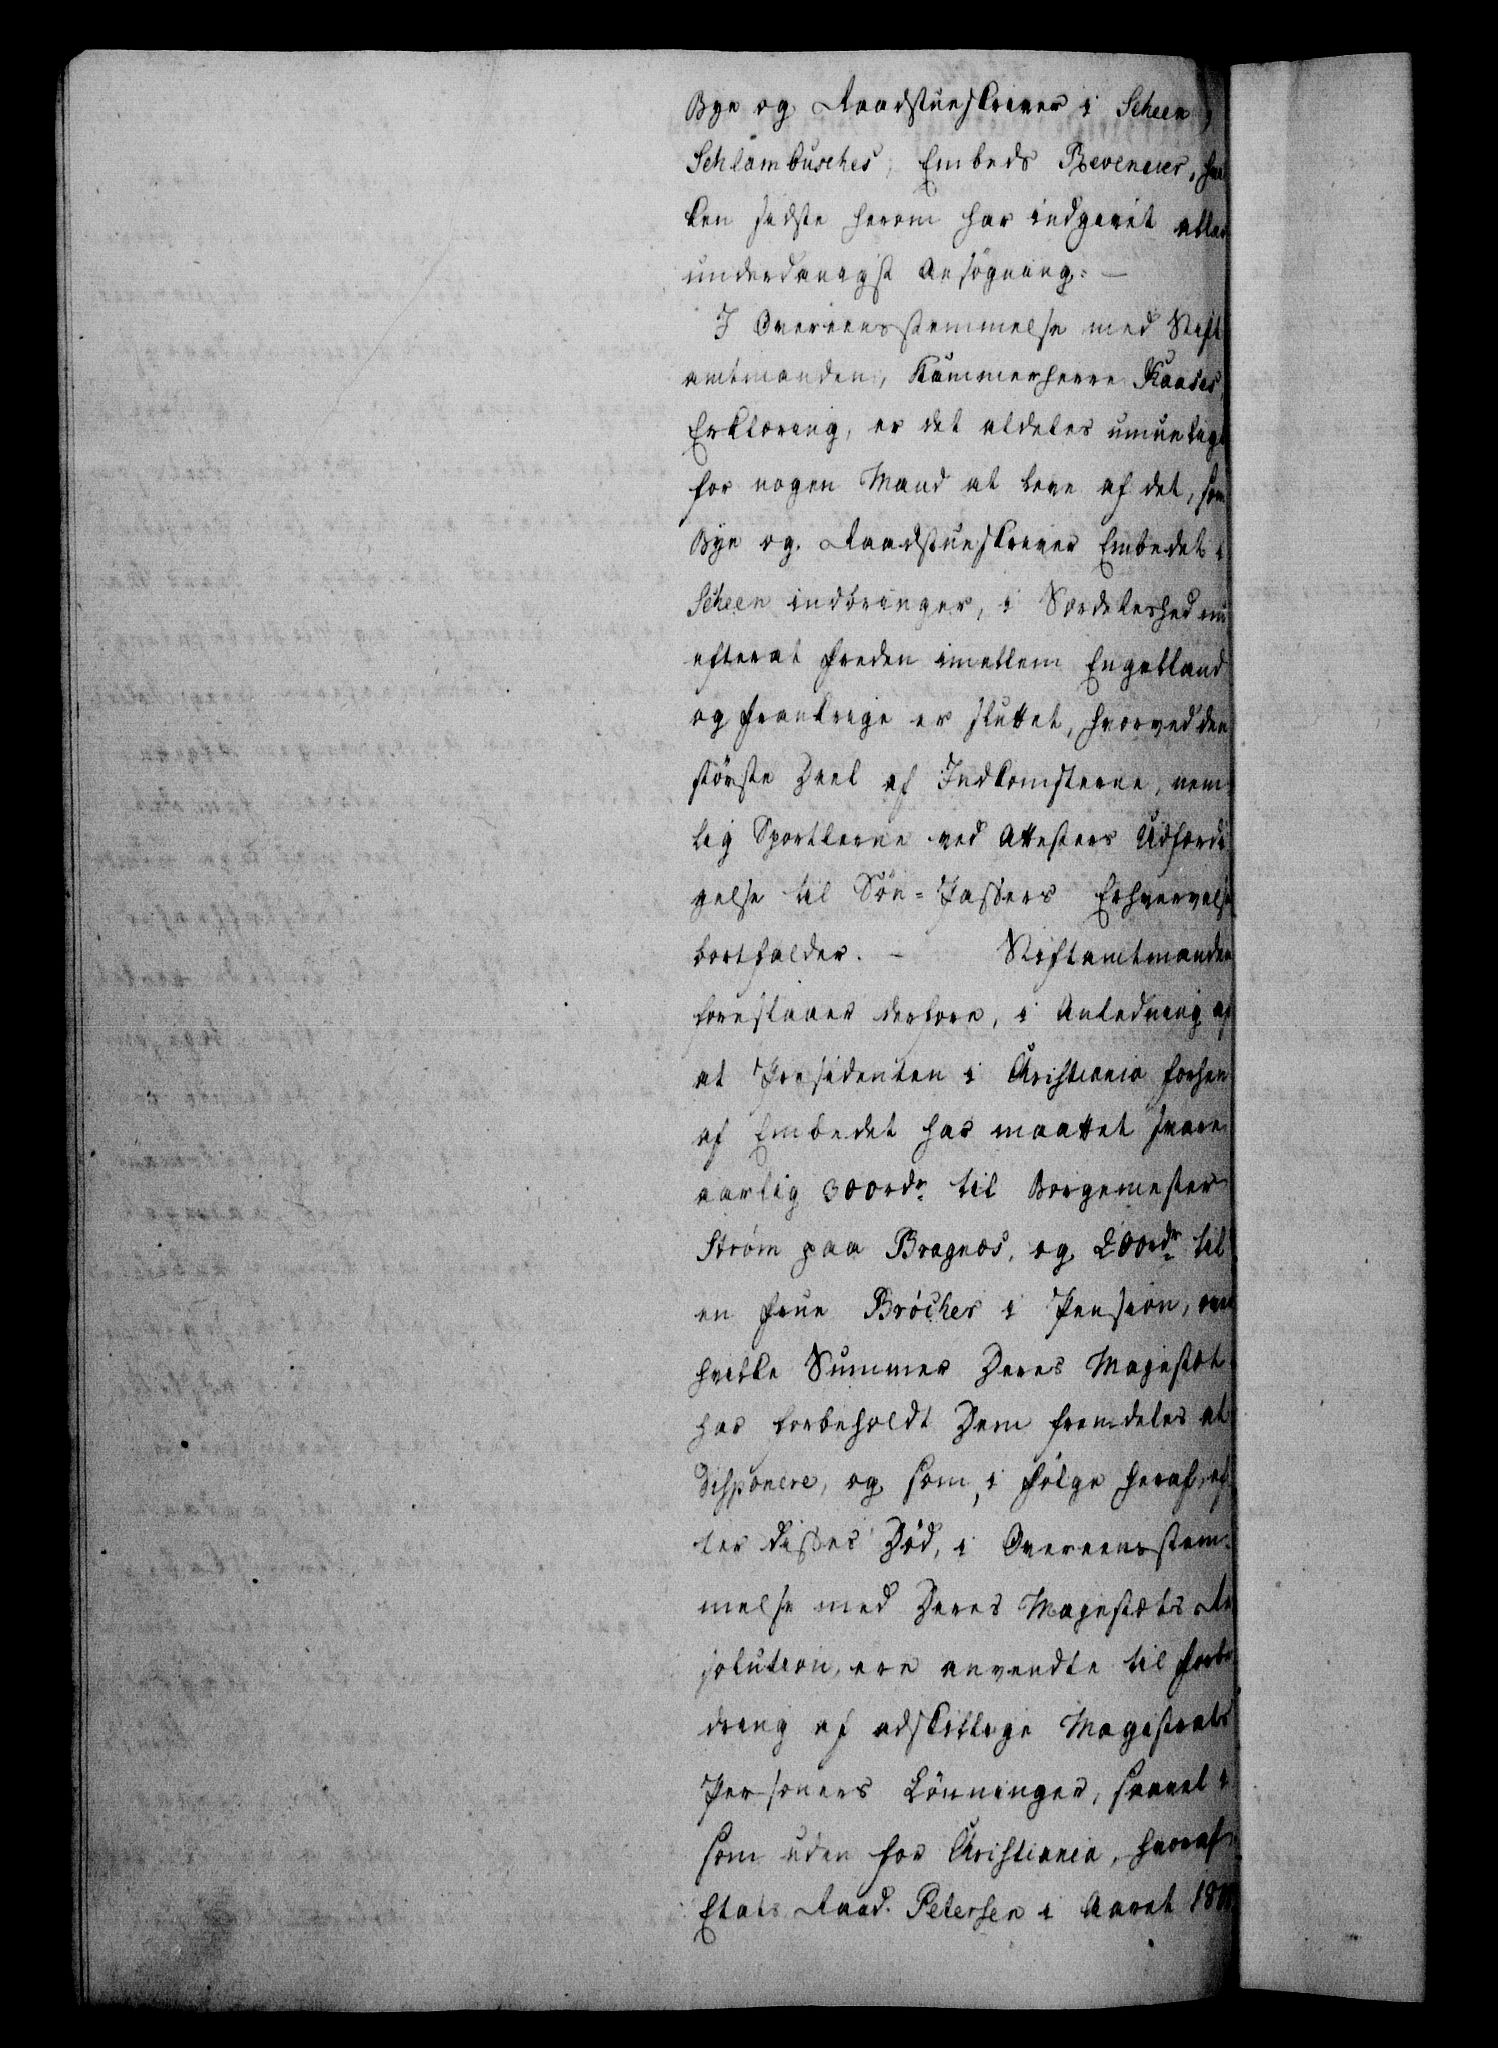 Bye og Raadstueskriver i Scheen,
Schlambusches, Embeds Revenuer, hvil
ken sidste herom har indgivet aller
underdanigst Ansøgning: —
I Overeensstemmelse med Stift
amtmanden, Kammerherre Kaases,
Erklæring, er det aldeles umueligt
for nogen Mand at leve af det, som
Bye og Raadstueskriver Embedet i
Scheen indbringer, i Særdeleshed nu
efterat Freden imellem Engelland
og Frankrige er sluttet, hvorved den
største Deel af Indkomsterne, nem
lig Sportlerne ved Attesters Udfærdi
gelse til Søe-Passers Erhvervelse
bortfalder. — Stiftamtmanden
foreslaaer derfore, i Anledning af
at Præsidenten i Christiania forhen
af Embedet har maattet svare
aarlig 300 rdr til Borgemester
Strøm paa Bragnæs, og 200 rdr til
en Frue Bröcher i Pension, over
hvilke Summer Deres Majestæt
har forbeholdt Dem fremdeles at
disponere, og som, i Følge heraf, ef
ter disses Død, i Overeensstem-
melse med Deres Majestæts Re
solution, ere anvendte til Forbe
dring af adskillige Magistrats
Personers Lønninger, saavel i
som uden for Christiania, hvoraf
Etats Raad Petersen i Aaret